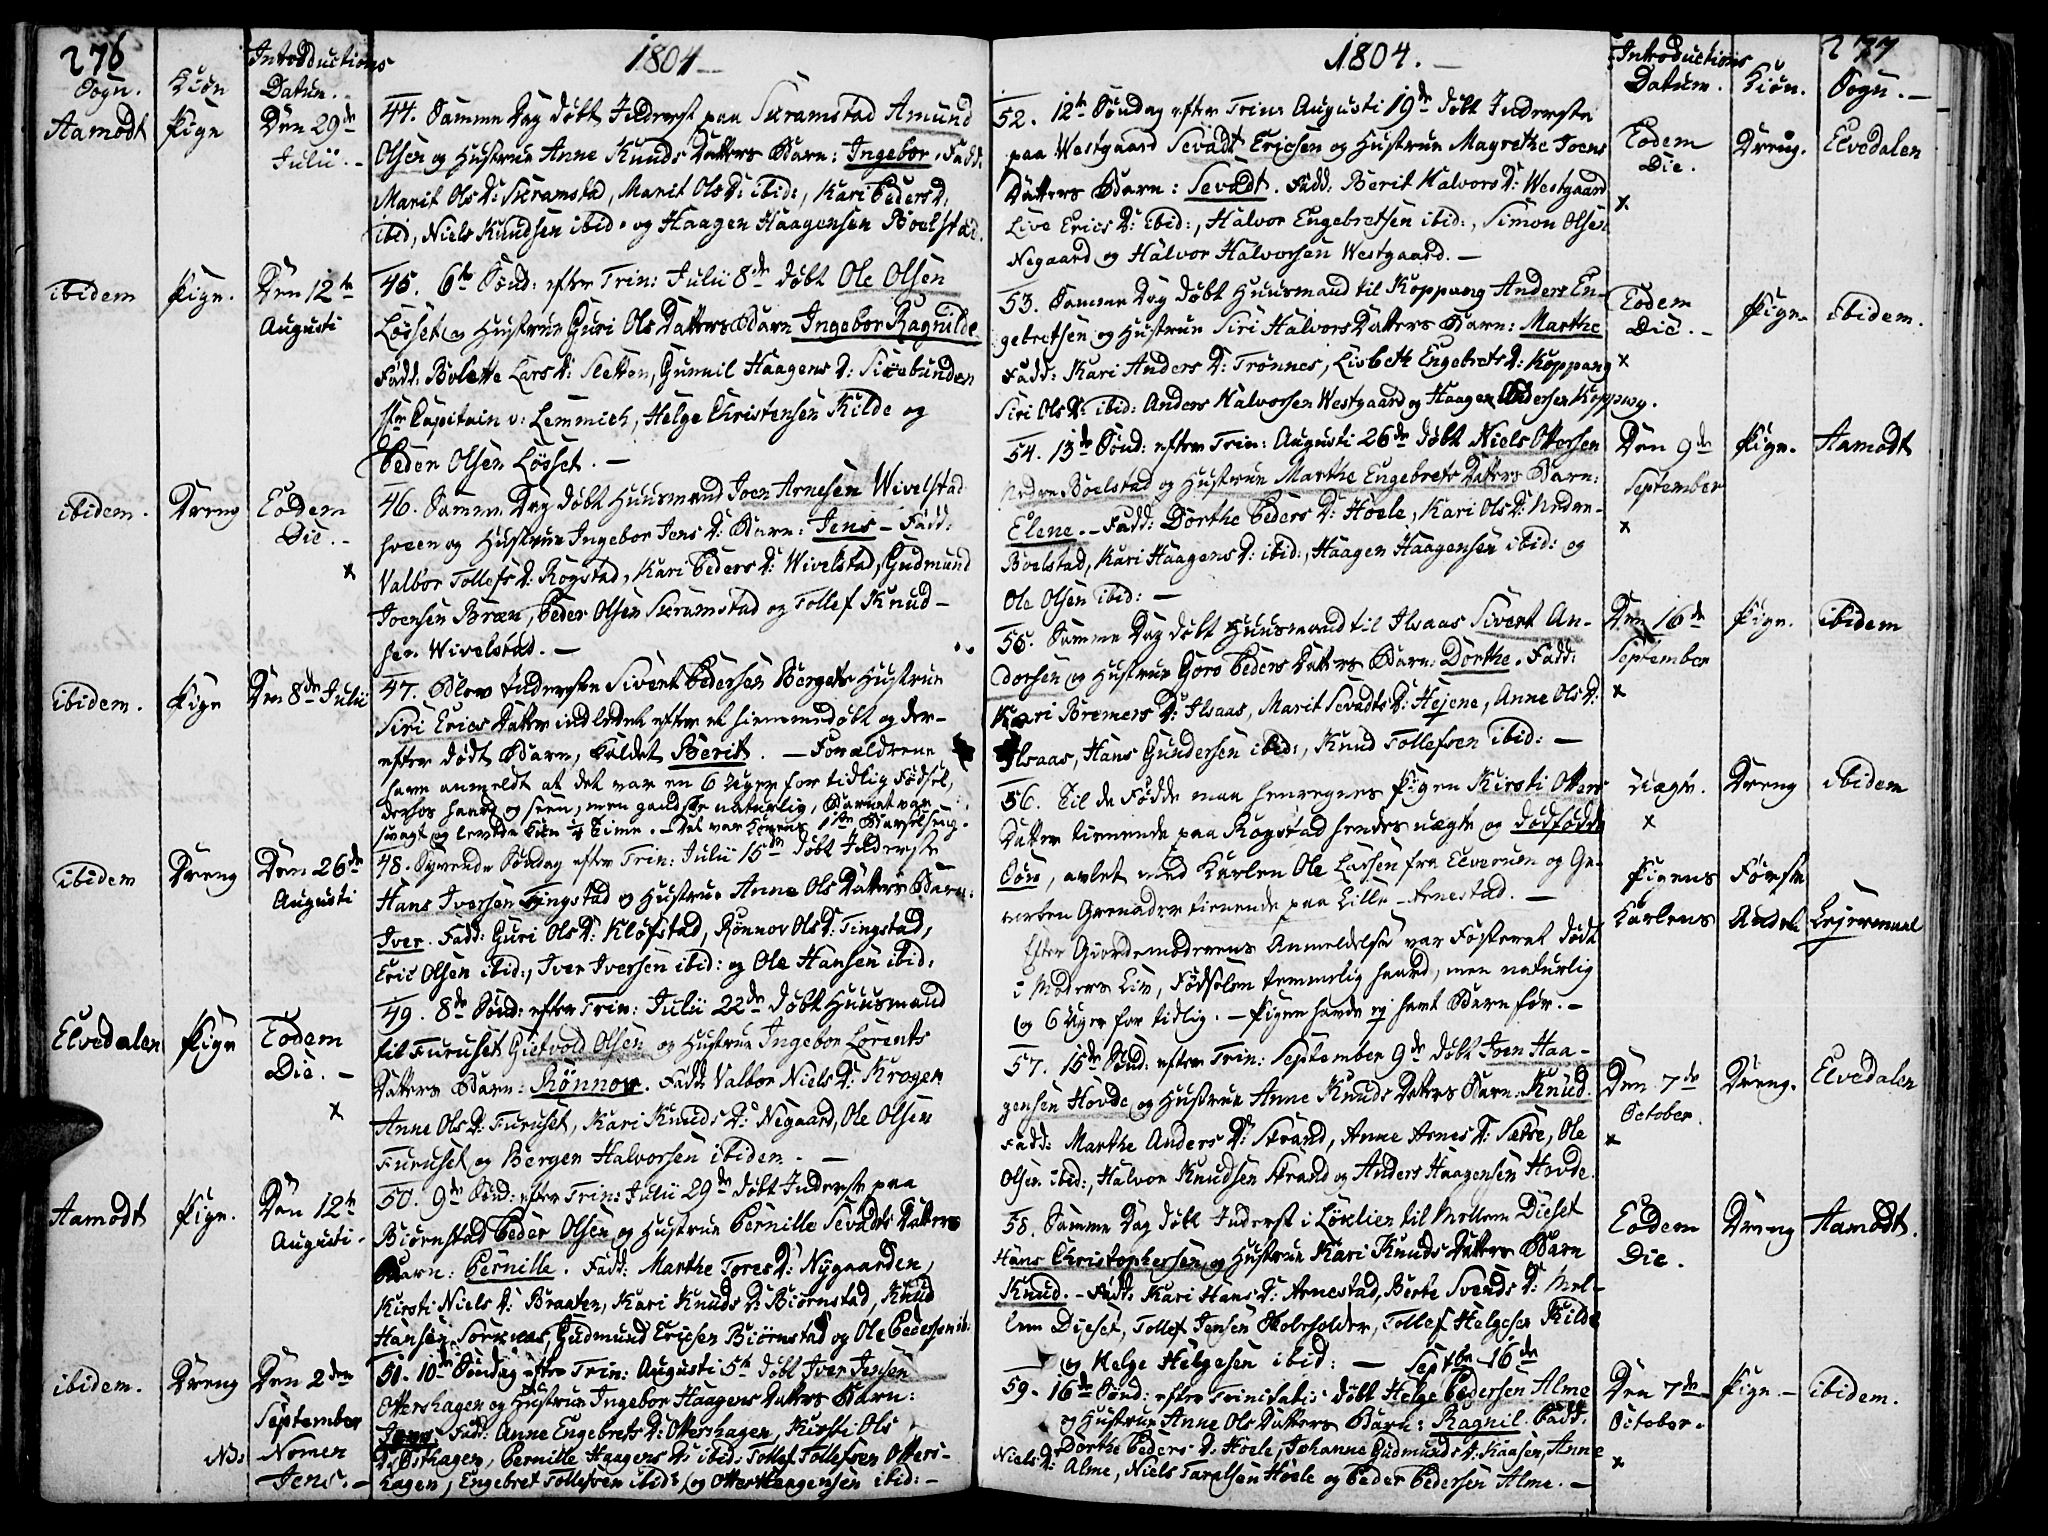 276
Sogn.
Kiön
Introductions
Datum.
1804
Aamodt
Pige
Den 29de
Julii.
44. Samme Dag døbt Inderst paa Skramstad Amund
Olsen og Hustrue Anne Knuds Datters Barn: Ingebor. Fadd:
Marit Ols D: Skramstad, Marit Ols D: ibid:, Kari Peders D:
ibid, Niels Knudsen ibid. og Haagen Haagensen Boelstad.
ibidem
Pige.
Den 12te
Augusti
45. 6te Sönd: efter Trin: Julii 8de døbt Ole Olsen
Lösset og Hustrue Guri Ols Datters Barn Ingebor Ragnilde
Fadd: Bolette Lars D: Sletten, Gunnil Haagens D:
Hr Capitain v: Lemmich, Helge Christensen Kilde og
Peder Olsen Lösset.
ibidem.
Dreng
Eodem
Die.
x
46. Samme Dag døbt Huusmand Joen Arnesen Wivelstad
hveen og Hustrue Ingebor Jens D: Barn: Jens - Fadd:
Valbor Tollefs D: Rogstad, Kari Peders D: Wivelstad, Gudmund
Joensen Bræn, Peder Olsen Skramstad og Tollef Knud-
sen Wivelstad.
ibidem.
Pige
Den 8de Julii
47. Blev Indersten Sivert Pedersen Bergets Hustrue
Siri Erics Datter indledet efter et hiemmedøbt og der-
efter dødt Barn, kaldet Berit. - Forældrene
have anmeldt at det var en 6 Uger for tidlig Fødsel,
derhos haard og seen, men gandske naturlig, Barnet var
svagt og levede kun 1/4 Time. - Det var Konens 1ste Barselseng.
ibidem
Dreng
Den 26de
Augusti
48. Syvende Søndag efter Trin: Julii 15de døbt Inderste
Hans Iversen Tingstad og Hustrue Anne Ols Datters Barn:
Iver. Fadd: Guri Ols D: Kløfstad, Rønnov Ols D: Tingstad,
Eric Olsen ibid:, Iver Iversen ibid: og Ole Hansen ibid:
Elvedalen
Pige
Eodem
Die.
x
49. 8de Sönd: efter Trin: Julii 22de døbt Huusmand
til Furuset Gietvold Olsen og Hustrue Ingebor Lorents
Datters Barn: Rönnov. Fadd: Valbor Niels D: Krogen
Anne Ols D: Furuset, Kari Knuds D: Negaard, Ole Olsen
Furuset og Bergen Halvorsen ibidem.
Aamodt
Pige.
Den 12te
Augusti.
50. 9de Sönd: efter Trin: Julii 29de døbt Inderst paa
Biørnstad Peder Olsen og Hustrue Pernille Sevaldts Datters
Barn: Pernille. Fadd: Marthe Tores D: Nygaarden,
Kirsti Niels D: Braaten, Kari Knuds D: Biørnstad, Knud
Hansen Sorknæs, Gudmund Ericsen Biørnstad og Ole Pedersen ib:
ibidem.
Dreng
Den 2den
September
NB: Nomen
Jens.
51. 10de Søndag efter Trin: Augusti 5te døbt Iver Jensen
Ottershagen og Hustrue Ingebor Haagens Datters Barn:
Jens. Fadd: Anne Engebrets D: Ottershagen, Kirsti Ols
D: Østhagen, Pernille Haagens D: ibid: Tollef Tollefsen Otters-
hagen, Engebret Tollefsen ibid: og Otter Haagensen ibid:
1804.
Introductions
Datum.
Kiön.
277
Sogn.
52. 12te Søndag efter Trin: Augusti 19de døbt Inderste
paa Westgaard Sevadt Ericsen og Hustrue Magrethe Joens
Datters Barn: Sevadt. Fadd: Berit Halvors D: Westgaard
Live Erics D: ibid:, Halvor Engebretsen ibid:, Simon Olsen
Negaard og Halvor Halvorsen Westgaard.
Eodem
Die.
x
Dreng.
Elvedalen
53. Samme Dag døbt Huusmand til Koppang Anders En-
gebretsen og Hustrue Siri Halvors Datters Barn: Marthe
Fadd: Kari Anders D: Trønnes, Lisbeth Engebrets D: Koppang
Siri Ols D: ibid: Anders Halvorsen Westgaard og Haagen Andersen Koppang.
Eodem
Die.
x
Pige.
ibidem.
54. 13de Sönd: efter Trin: Augusti 26de døbt Niels Ottersen
Nedre Boelstad og Hustrue Marthe Engebrets Datters Barn:
Elene. - Fadd: Dorthe Peders D: Hoele, Kari Ols D: Nedre-
Boelstad, Kari Haagens D: ibid:, Haagen Haagensen ibid: og
Ole Olsen ibid:
Den 9de
September
x
Pige.
Aamodt
55. Samme Dag døbt Huusmand til Ilsaas Sivert An-
dersen og Hustrue Goro Peders Datters Barn: Dorthe. Fadd:
Kari Bremers D: Ilsaas, Marit Sevadts D: Hejene, Anne Ols D:
Ilsaas, Hans Gundersen ibid:, Knud Tollefsen ibid:
Den 16de
September
x
Pige.
ibidem
56. Til de Fødde maa henregnes Pigen Kirsti Otters
Datter tienende paa Rogstad hendes uægte og dødfødde
Søn, avlet med Karlen Ole Larsen fra Elverum og Ge-
worben Grenader tienende paa Lille-Arnestad.
Efter Giordemoderens Anmeldelse var Fosteret dødt
i Moders Liv, Fødselen temmelig haard, men naturlig
og 6 Uger for tidlig. - Pigen havde ej havt Barn før.
Uægte.
x
Dreng
ibidem
Pigens
Første
Karlens
Anden
Lejermaal
57. 15de Sönd: efter Trin: September 9de døbt Joen Haa-
gensen Hovde og Hustrue Anne Knuds Datters Barn: Knud.
Fadd: Marthe Anders D: Strand, Anne Arnes D: Sætre, Ole
Olsen ibid:, Halvor Knudsen Strand og Anders Haagensen Hovde.
Den 7de
October.
x
Dreng.
Elvedalen
58. Samme Dag døbt Inderst i Löklien til Mellem Dieset
Hans Christophersen og Hustrue Kari Knuds Datters Barn
Knud. - Fadd: Kari Hans D: Arnestad, Berte Svends D: Mel-
lem Dieset, Tollef Jensen Skobeholder, Tollef Helgesen Kilde
og Helge Helgesen ibid:
Eodem
Die.
Dreng
Aamodt.
Septbr 16de
59. 16de Sönd: efter Trinitatis døbt Helge Pedersen Alme
og Hustrue Anne Ols Datters Barn: Ragnil. Fadd:
Dorthe Peders D: Hoele, Johanne Gudmunds D: Kaasen, Anne
Niels D: Alme, Niels Taralsen Hoele og Peder Pedersen Alme.
Den 7de
October.
x
Pige
ibidem.